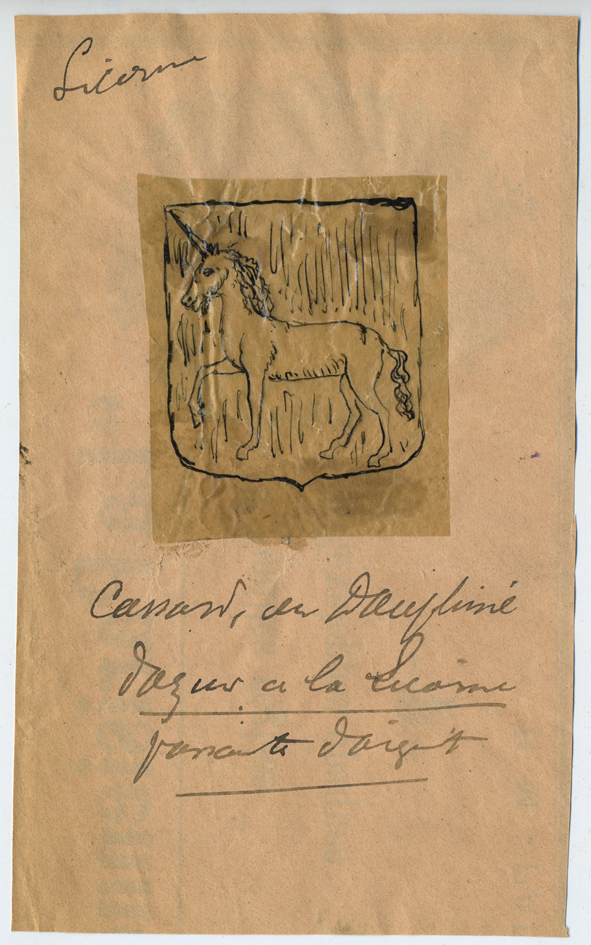 Licorne
Cassard, en Dauphiné
d'azur a la Licorne
passante d'argent